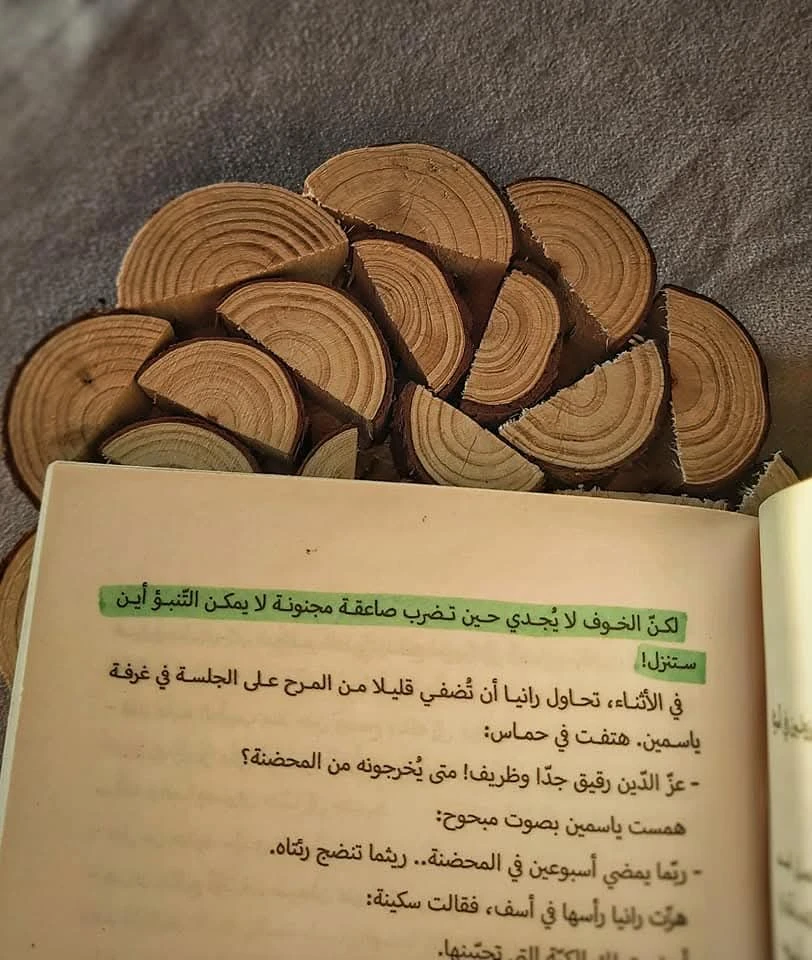 لكنّ الخوف لا يُجدي حين تضرب صاعقة مجنونة لا يمكن التّنبؤ أين
ستنزل!
في الأثناء، تحاول رانيا أن تُضفي قليلا من المرح على الجلسة في غرفة
ياسمين. هتفت في حماس:
- عزّ الدّين رقيق جدّا وظريف! متى يُخرجونه من المحضنة؟
همست ياسمين بصوت مبحوح:
- ربّما يمضي أسبوعين في المحضنة.. ريثما تنضج رئتاه.
هزّت رانيا رأسها في أسف، فقالت سكينة: